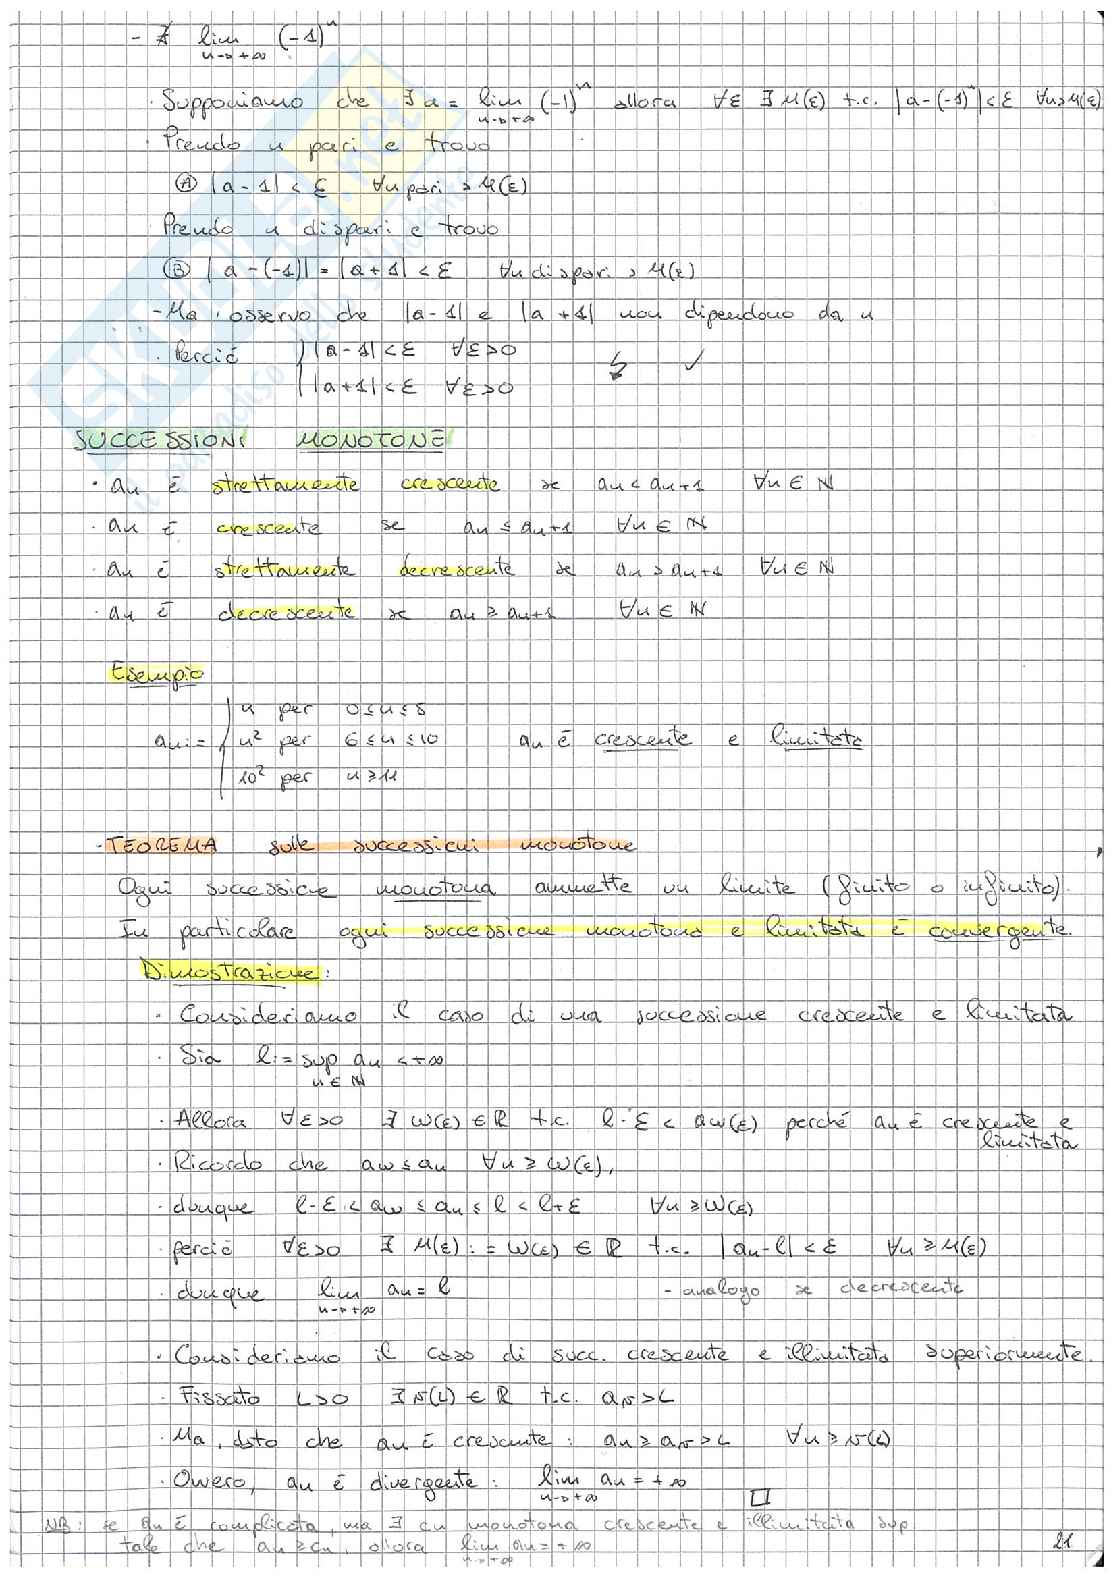 - ∄ lim (-1)^n
n→+∞
· Supponiamo che ∃ a = lim (-1)^n allora ∀ε ∃ M(ε) t.c. |a-(-1)^n|<ε ∀n>M(ε)
n→+∞
· Prendo n pari e trovo
Ⓐ |a-1|<ε ∀n pari > M(ε)
Prendo n dispari e trovo
Ⓑ |a-(-1)| = |a+1| < ε ∀n dispari > M(ε)
- Ma, osservo che |a-1| e |a+1| non dipendono da n
· Perciò { |a-1|<ε ∀ε>0 ↯ ✓
|a+1|<ε ∀ε>0
SUCCESSIONI MONOTONE
· an è strettamente crescente se an < an+1 ∀n ∈ ℕ
· an è crescente se an ≤ an+1 ∀n ∈ ℕ
· an è strettamente decrescente se an > an+1 ∀n ∈ ℕ
· an è decrescente se an ≥ an+1 ∀n ∈ ℕ
Esempio
n per 0≤n≤5
an:= { n² per 6≤n≤10 an è crescente e limitata
10² per n≥11
· TEOREMA sulle successioni monotone
Ogni successione monotona ammette un limite (finito o infinito).
In particolare ogni successione monotona e limitata è convergente.
Dimostrazione:
· Consideriamo il caso di una successione crescente e limitata
· Sia l:= sup an < +∞
n∈ℕ
· Allora ∀ε>0 ∃ w(ε) ∈ ℝ t.c. l-ε < aw(ε) perché an è crescente e
limitata
· Ricordo che aw ≤ an ∀n ≥ w(ε),
· dunque l-ε < aw ≤ an ≤ l < l+ε ∀n ≥ w(ε)
· perciò ∀ε>0 ∃ M(ε) := w(ε) ∈ ℝ t.c. |an-l|<ε ∀n ≥ M(ε)
· dunque lim an = l - analogo se decrescente
n→+∞
· Consideriamo il caso di succ. crescente e illimitata superiormente.
· Fissato L>0 ∃ v(L) ∈ ℝ t.c. av > L
· Ma, dato che an è crescente: an ≥ av > L ∀n ≥ v(L)
· Ovvero, an è divergente: lim an = +∞
n→+∞ □
NB: se an è complicata, ma ∃ cn monotona crescente e illimitata sup
tale che an ≥ cn, allora lim an = +∞
n→+∞
21
SKUOLA.net
il paradiso dello studente